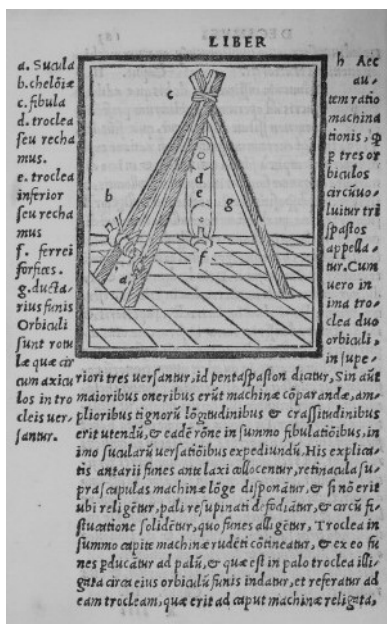 LIBER
a. Sucula
b. chelõiæ
c. fibula
d. troclea
seu recha
mus.
e. troclea
inferior
seu recha
mus
f. ferrei
forfices.
g. ducta-
rius funis
Orbiculi
sunt rotu
læ quæ cir
cum axicu
los in tro
cleis ver-
santur.
c
d
e
b
g
n
a
f
h Aec
au-
tem ratio
machina
tionis, q
p tres or
biculos
circũuo-
luitur tri
spastos
appella-
tur. Cum
uero in
ima tro-
clea duo
orbiculi,
in supe-
riori tres uersantur, id pentaspaston dicitur, Sin aũt
maioribus oneribus erũt machinæ cõparandæ, am-
plioribus tignorũ lõgitudinibus & crassitudinibus
erit utendũ, & eadẽ rõne in summo fibulatiõibus, in
imo sucularũ uersatiõibus expediundũ. His explica-
tis antarii funes ante laxi collocentur, retinacula su-
pra scapulas machinæ lõge disponãtur, & si nõ erit
ubi religẽtur, pali resupinati defodiãtur, & circũ fi-
stucatione solidẽtur, quo funes alligẽtur, Troclea in
summo capite machinæ rudẽti cõtineatur, & ex eo fu
nes pducãtur ad palũ, & quæ est in palo troclea illi-
gata circa eius orbiculũ funis indatur, et referatur ad
eam trocleam, quæ erit ad caput machinæ religata,